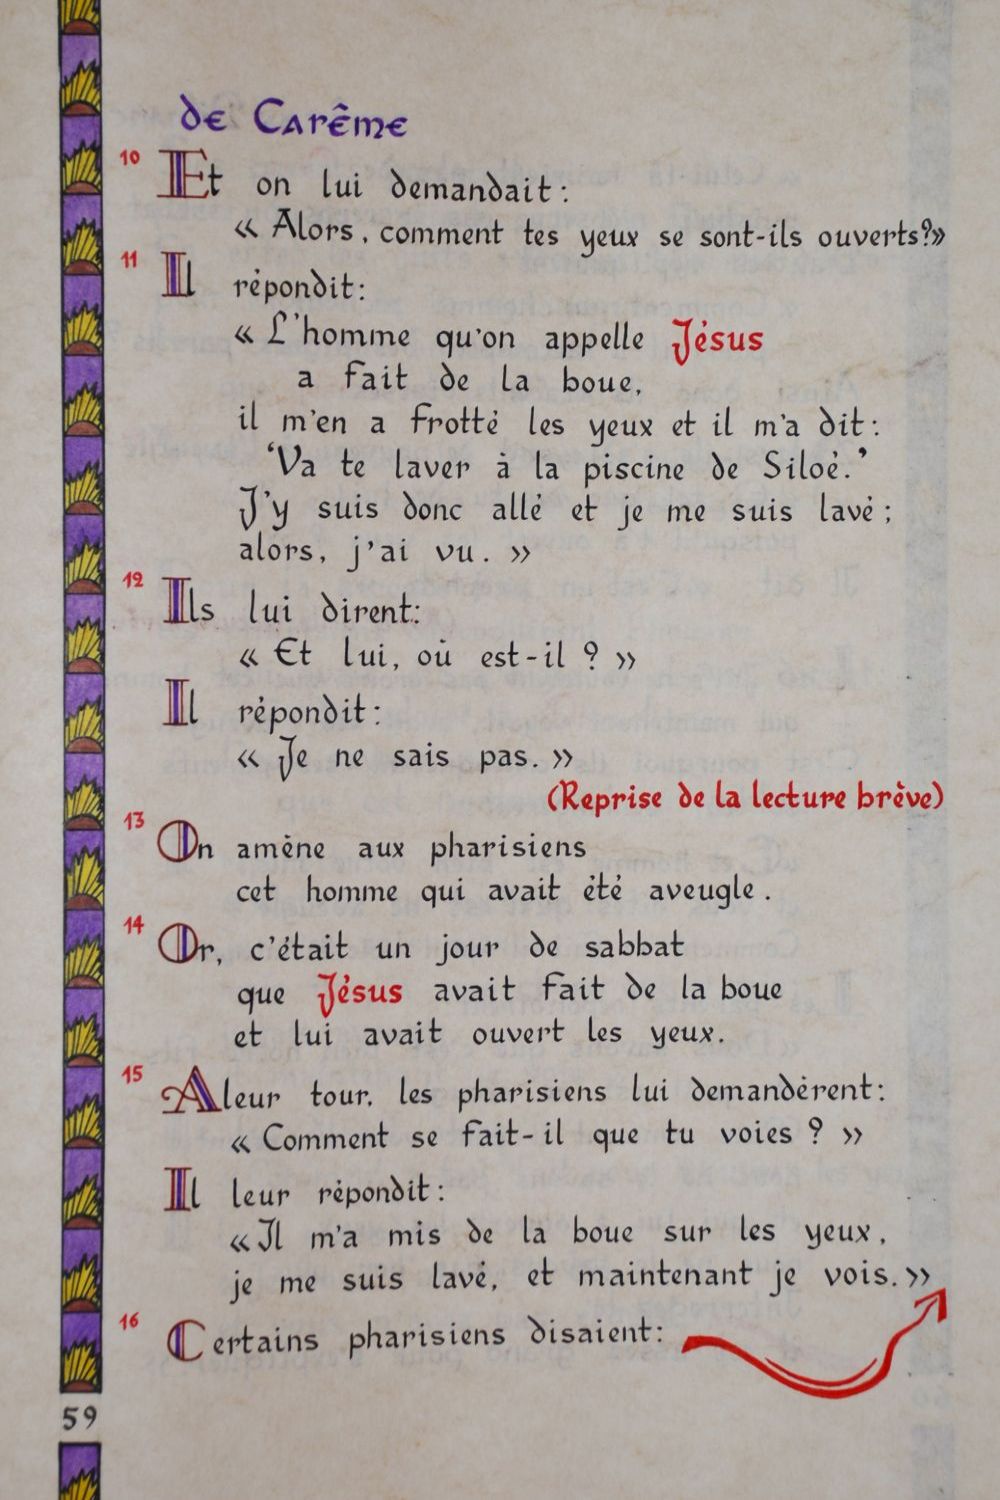 de Carême
10 Et on lui demandait :
« Alors, comment tes yeux se sont-ils ouverts ? »
11 Il répondit :
« L'homme qu'on appelle Jésus
a fait de la boue,
il m'en a frotté les yeux et il m'a dit :
‘Va te laver à la piscine de Siloé.’
J'y suis donc allé et je me suis lavé ;
alors, j'ai vu. »
12 Ils lui dirent :
« Et lui, où est-il ? »
Il répondit :
« Je ne sais pas. »
(Reprise de la lecture brève)
13 On amène aux pharisiens
cet homme qui avait été aveugle.
14 Or, c'était un jour de sabbat
que Jésus avait fait de la boue
et lui avait ouvert les yeux.
15 A leur tour, les pharisiens lui demandèrent :
« Comment se fait-il que tu voies ? »
Il leur répondit :
« Il m'a mis de la boue sur les yeux,
je me suis lavé, et maintenant je vois. »
16 Certains pharisiens disaient :
59